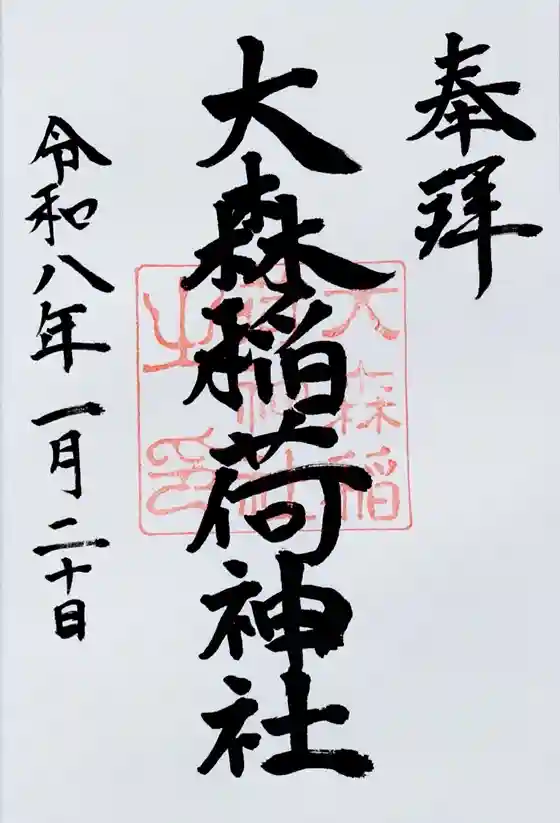 奉拝
大森稲荷神社
大森稲荷神社之印
令和八年一月二十日